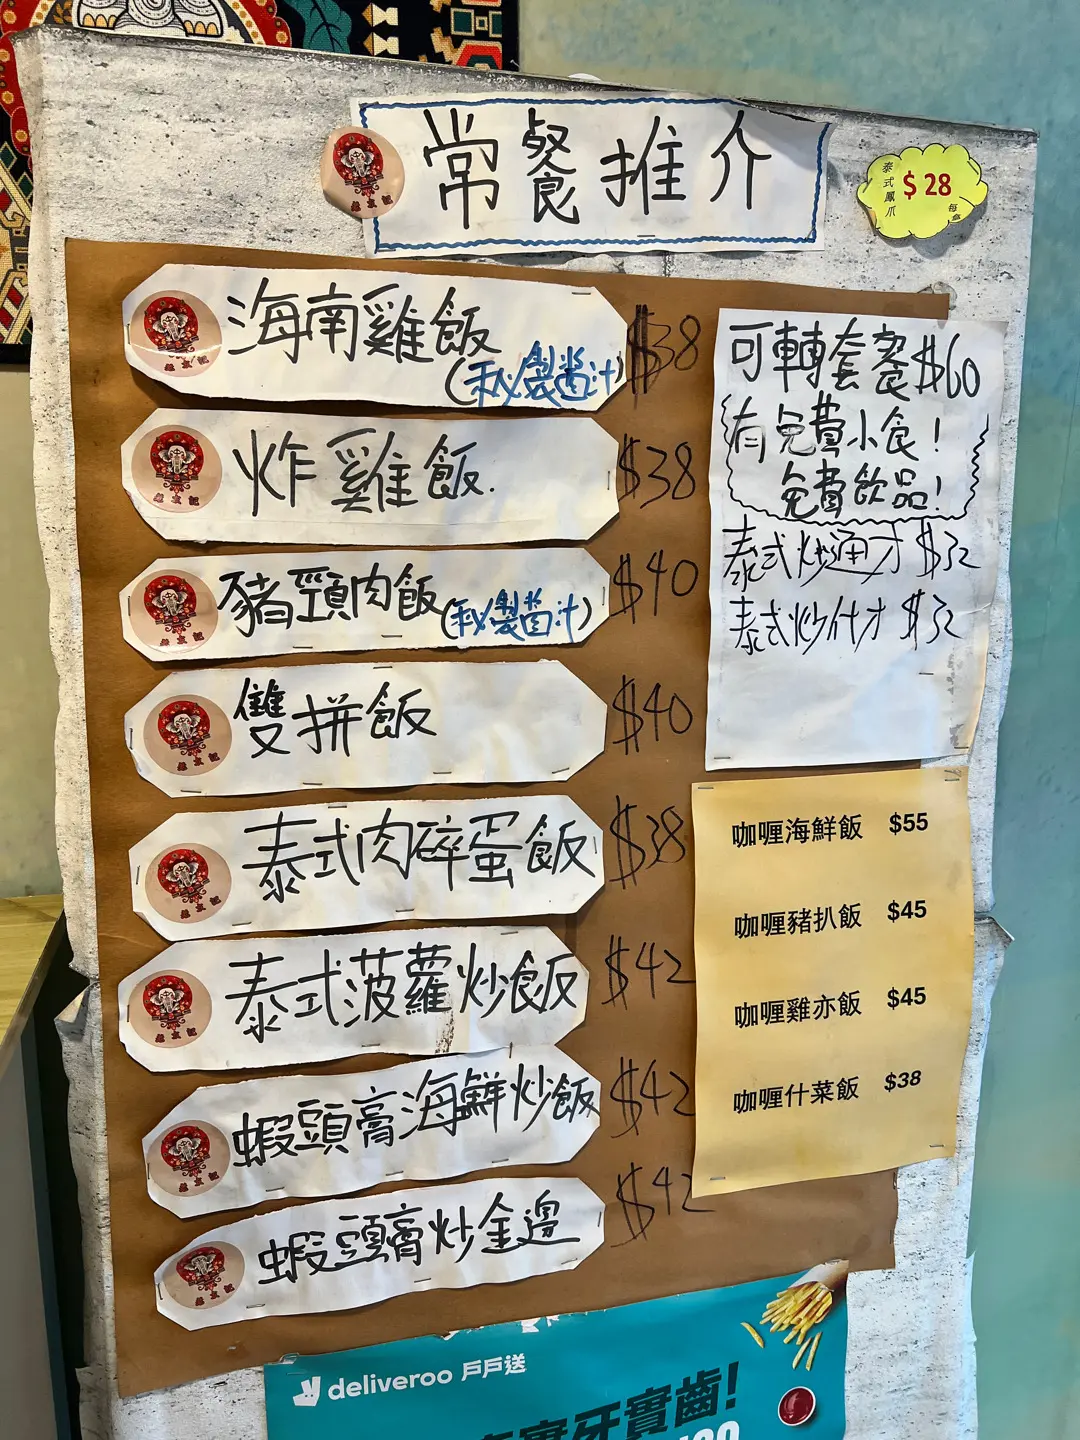 常餐推介
泰式鳳爪 $28 每盒
海南雞飯 $38
(秘製醬汁)
炸雞飯. $38
豬頸肉飯(秘製醬汁) $40
雙拼飯 $40
泰式肉碎蛋飯 $38
泰式菠蘿炒飯 $42
蝦頭膏海鮮炒飯 $42
蝦頭膏炒金邊 $42
可轉套餐$60
有免費小食!
免費飲品!
泰式炒通才 $32
泰式炒什才 $32
咖喱海鮮飯 $55
咖喱豬扒飯 $45
咖喱雞亦飯 $45
咖喱什菜飯 $38
deliveroo 戶戶送
牙實齒!